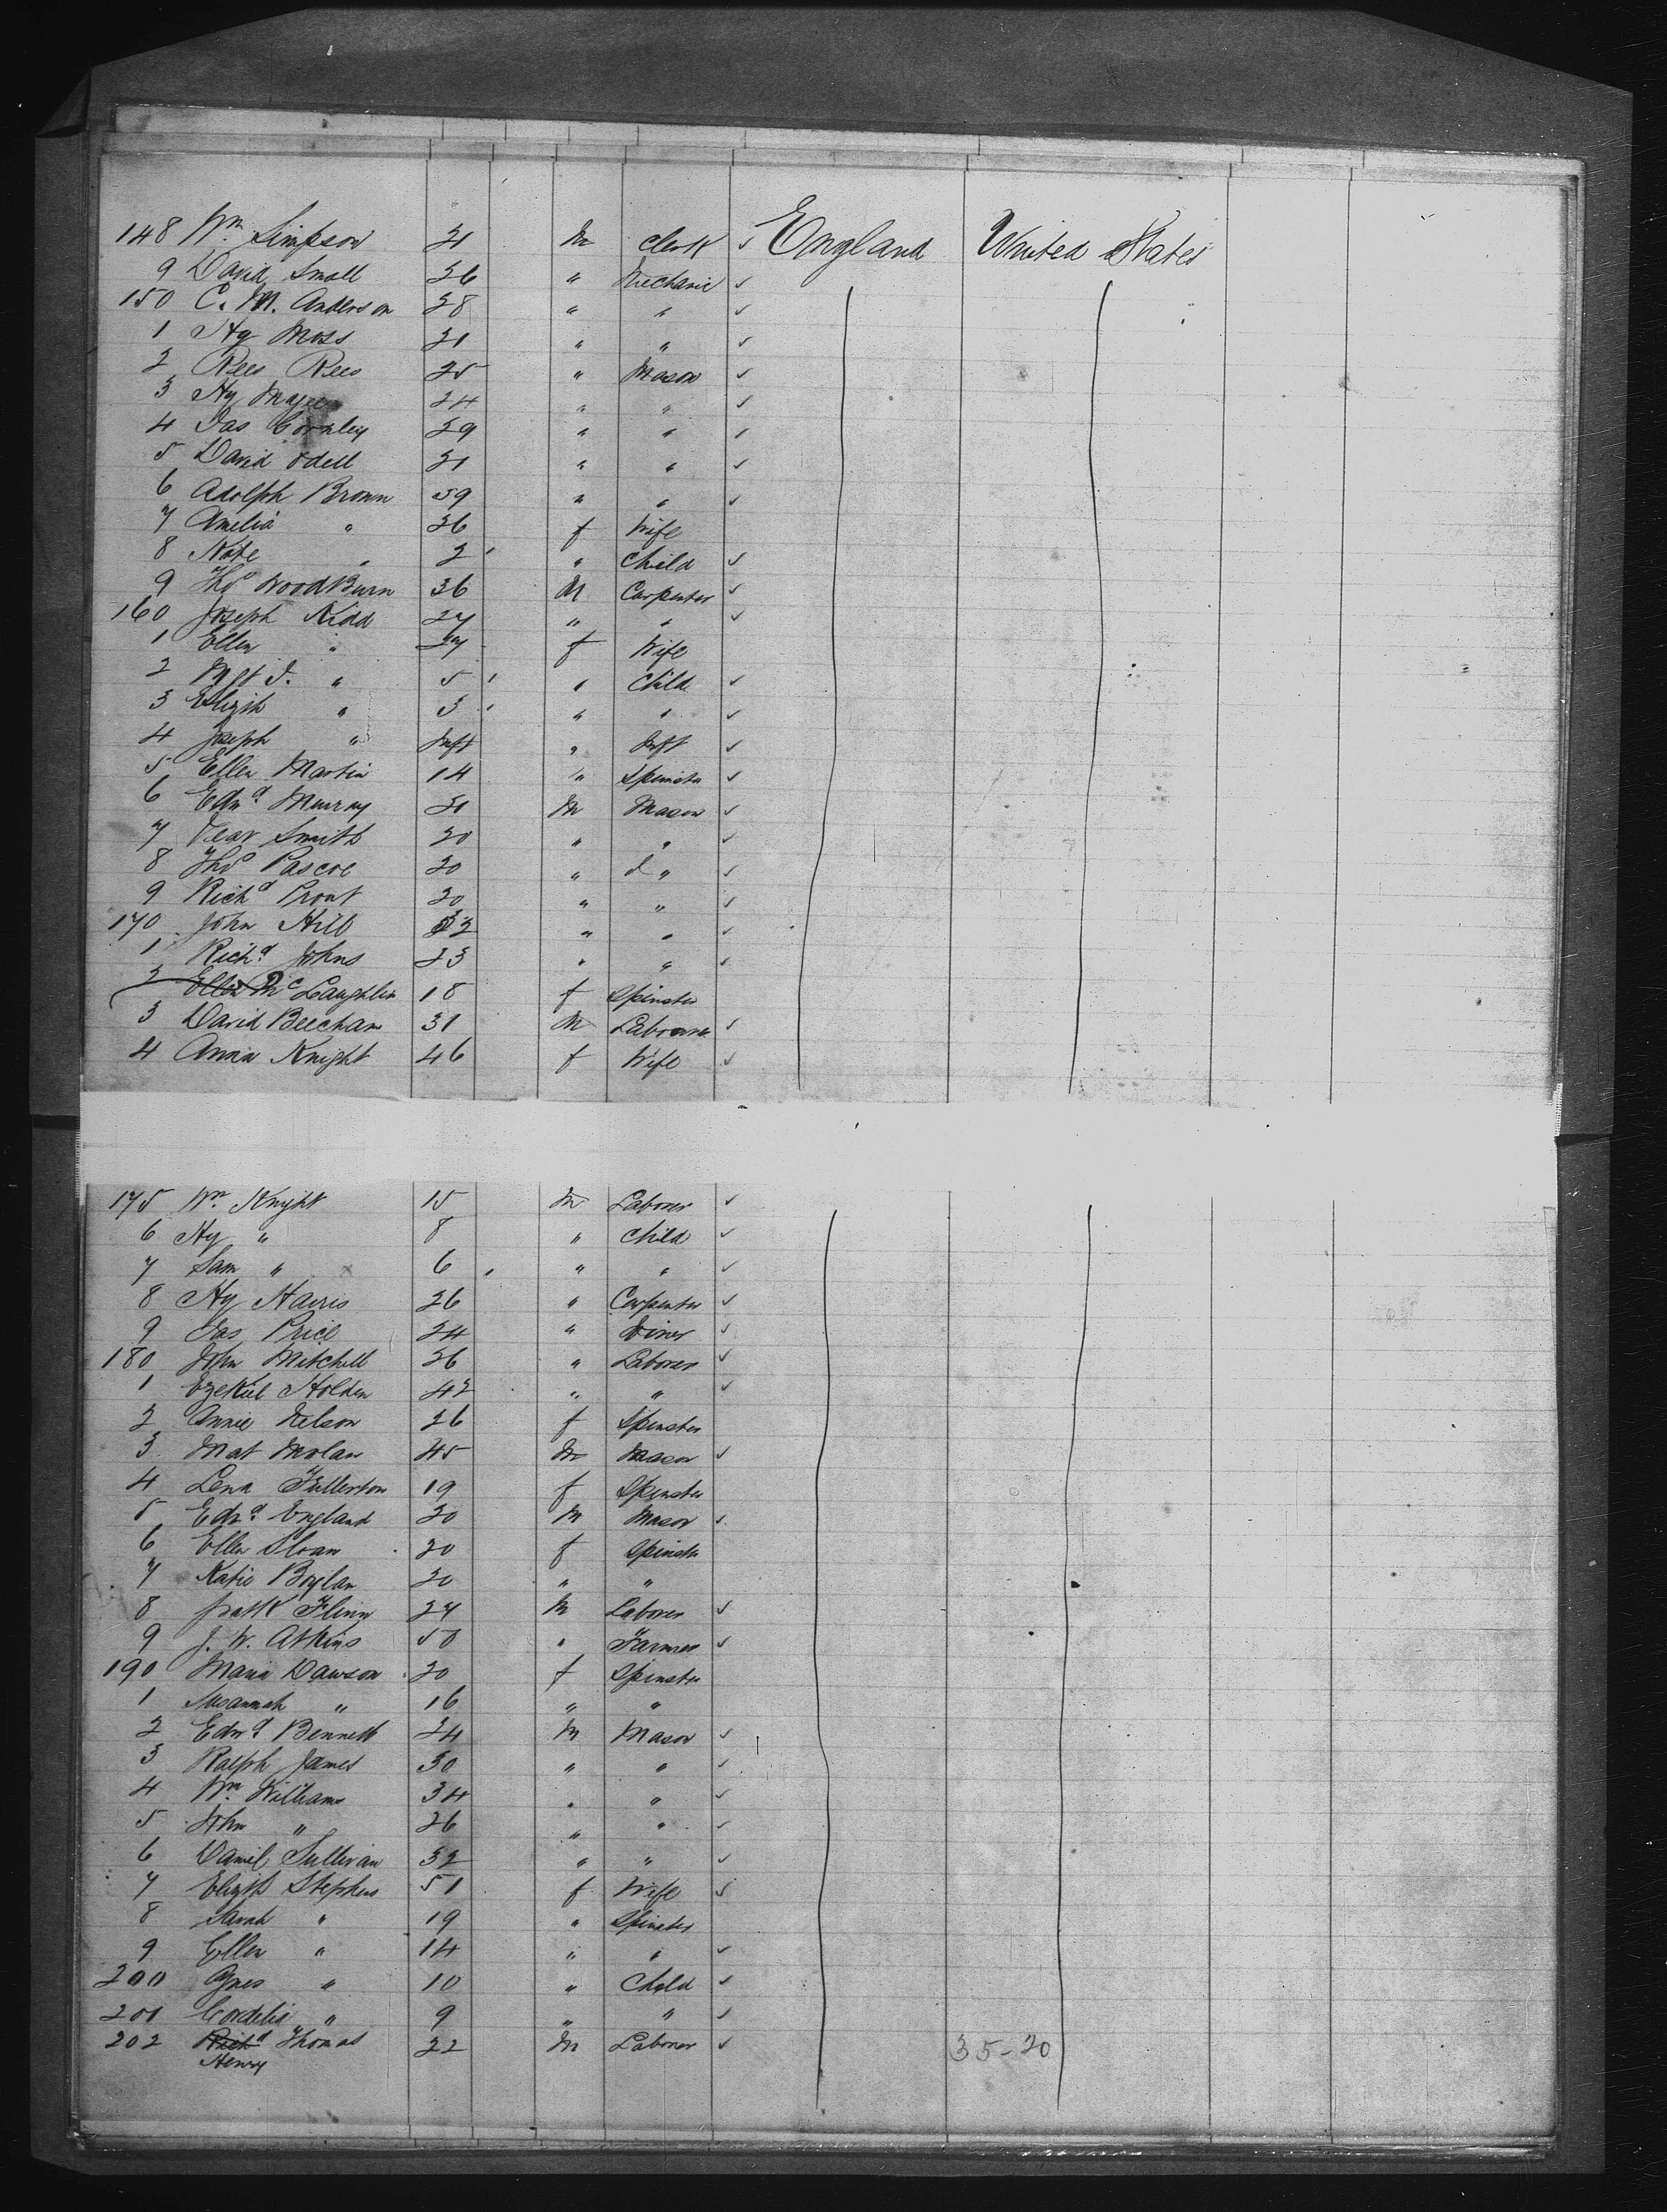 148 Wm Simpson 21 M Clerk ✓ England United States
9 David Small 26 " Mechanic ✓
150 C. M. Anderson 28 " " ✓
1 Hy Moss 21 " " ✓
2 Rees Rees 25 " Mason ✓
3 Hy Magee 24 " " ✓
4 Jas Cornley 29 " " ✓
5 David Odell 21 " " ✓
6 Adolph Brown 59 " " ✓
7 Amelia " 26 f Wife
8 Kate " 2 " Child ✓
9 Thos WoodBurn 36 M Carpenter ✓
160 Joseph Kidd 27 " " ✓
1 Ellen " 27 f Wife
2 Mgt J. " 5 " Child ✓
3 Elizth " 3 " " ✓
4 Joseph " Inft " Inft ✓
5 Ellen Martin 14 " Spinster ✓
6 Edwd Murray 21 M Mason ✓
7 Smith 20 " " ✓
8 Thos Pascoe 20 " d " ✓
9 Richd Prout 20 " " ✓
170 John Hill 32 " " ✓
1 Richd Johns 23 " " ✓
2 Ellen McLaughlin 18 f Spinster
3 David Beecham 31 M Laborer ✓
4 Anna Knight 46 f Wife ✓
175 Wm Knight 15 M Laborer ✓
6 Hy " 8 " Child ✓
7 Sam " 6 " " ✓
8 Hy Harris 26 " Carpenter ✓
9 Jas Price 24 " Joiner ✓
180 John Mitchell 26 " Laborer ✓
1 Ezekiel Holden 42 " " ✓
2 Annie Nelson 26 f Spinster
3 Mat Molan 45 M Mason ✓
4 Lena Fullerton 19 f Spinster
5 Edwd England 20 M Mason ✓
6 Ellen Sloan 20 f Spinster
7 Katie Boylan 20 " "
8 Patk Flinn 27 M Laborer ✓
9 J. W. Atkins 50 " Farmer ✓
190 Maria Dawson 20 f Spinster
1 Susannah " 16 " "
2 Edwd Bennett 24 M Mason ✓
3 Ralph James 30 " " ✓
4 Wm Williams 34 " " ✓
5 John " 26 " " ✓
6 Daniel Sullivan 32 " " ✓
7 Elizth Stephens 51 f Wife ✓
8 Sarah " 19 " Spinster
9 Ellen " 14 " " ✓
200 Agnes " 10 " Child ✓
201 Cordelia " 9 " " ✓
202 Richd Thomas 22 M Laborer ✓ 35-20
Henry